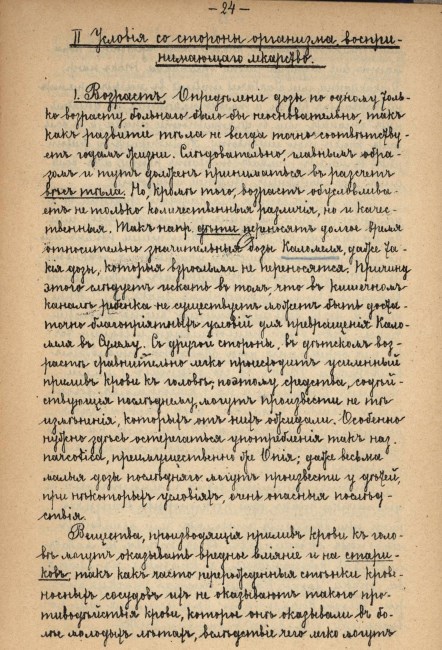 — 24 —
II Условія со стороны организма, воспри-
нимающаго лекарство.
1. Возрастъ. Опредѣленіе дозы по одному толь-
ко возрасту больнаго было бы неосновательно, такъ
какъ развитіе тѣла не всегда точно соотвѣтству-
етъ годамъ жизни. Слѣдовательно, главнымъ обра-
зомъ и тутъ долженъ приниматься въ разсчетъ
вѣсъ тѣла. Но, кромѣ того, возрастъ обусловлива-
етъ не только количественныя различія, но и качес-
твенныя. Такъ напр. дѣти переносятъ долгое время
относительно значительныя дозы Каломеля, даже та-
кія дозы, которыя взрослыми не переносятся. Причину
этого слѣдуетъ искать въ томъ, что въ кишечномъ
каналѣ ребенка не существуетъ можетъ быть доста-
точно благопріятныхъ условій для превращенія Кало-
меля въ Сулему. Съ другой стороны, въ дѣтскомъ воз-
растѣ сравнительно легко происходитъ усиленный
приливъ крови къ головѣ; поэтому средства, содѣй-
ствующія послѣднему, могутъ произвести не тѣ
измѣненія, которыхъ отъ нихъ ожидали. Особенно
нужно здѣсь остерегаться употребленія такъ наз.
narcotica, преимущественно же Опія; даже весьма
малыя дозы послѣдняго могутъ произвести у дѣтей,
при нѣкоторыхъ условіяхъ, очень опасныя послѣд-
ствія.
Вещества, производящія приливъ крови къ голо-
вѣ могутъ оказывать вредное вліяніе и на стари-
ковъ, такъ какъ часто перерожденныя стѣнки крове-
носныхъ сосудовъ ихъ не оказываютъ такого про-
тиводѣйствія крови, которое онѣ оказывали въ бо-
лѣе молодыхъ лѣтахъ, вслѣдствіе чего легко могутъ